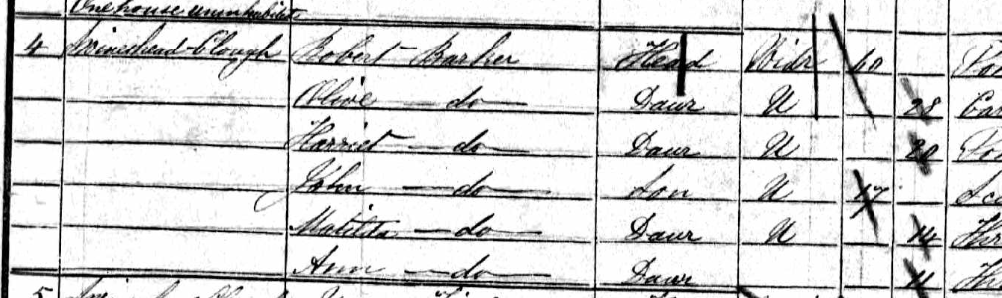 One house uninhabited
4 Swineshead Clough Robert Barker Head Widr 60
Olive do Daur U 28
Harriet do Daur U 20
John do Son U 17
Matilda do Daur U 14
Ann do Daur 11
5